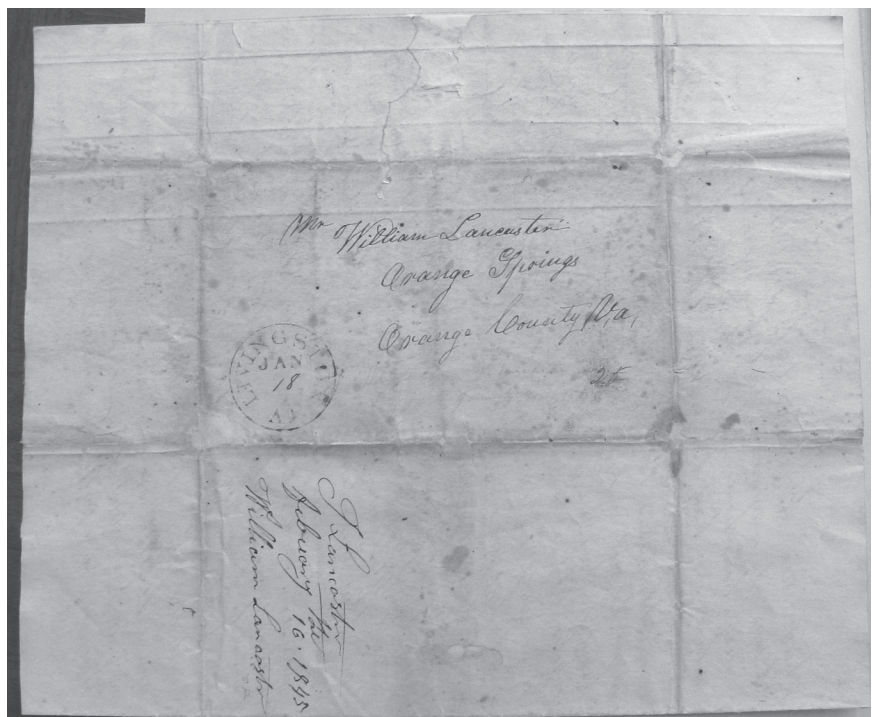 Mr William Lancaster
Orange Springs
Orange County, Va,
25
LIVINGSTON
JAN
18
J Lancaster
Febuary the 16. 1845
William Lancaster